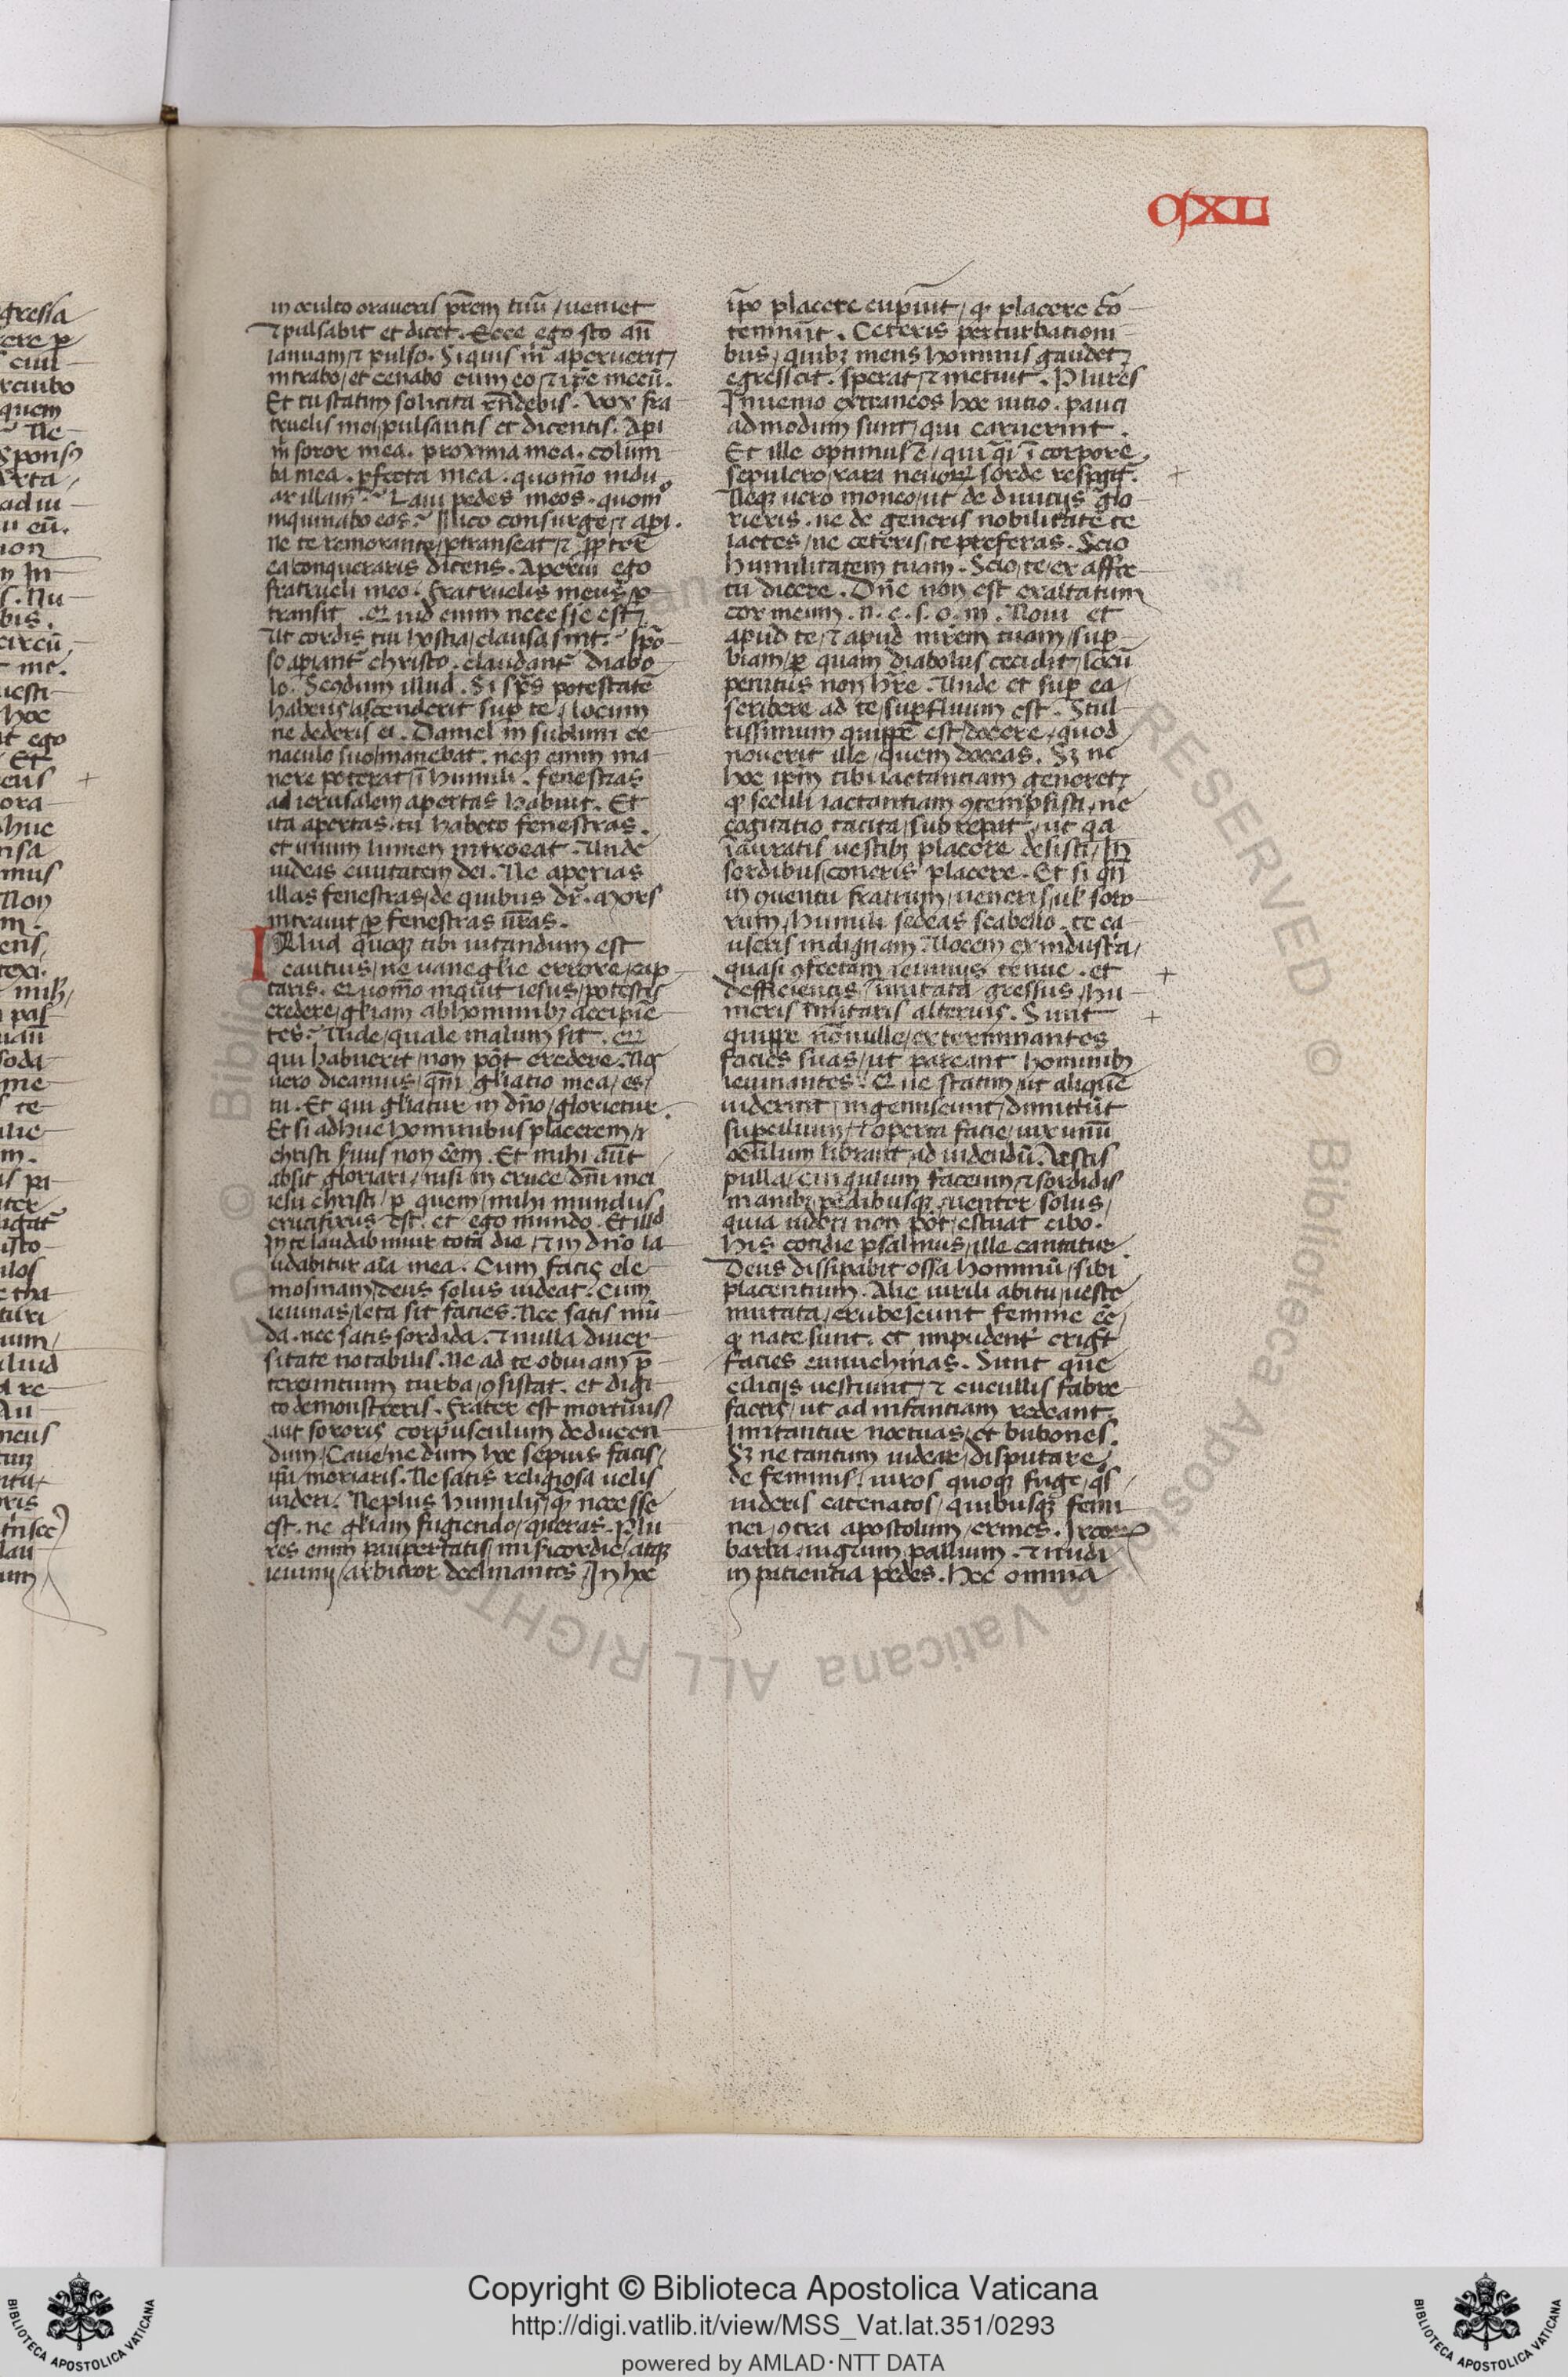 OſXL
in oculto oraueris p̄rem tuū / ueniet
⁊ pulsabit et dicet. Ecce ego sto an̄
ianuam / ⁊ pulso. Siquis m̄ aperuerit /
intrabo / et cenabo cum eo / ⁊ ip̄e mecū.
Et tu statim solicita rn̄debis. Vox fra
truelis mei / pulsantis et dicentis. Api
m̄ soror mea. proxima mea. colum
ba mea. ꝑfecta mea. quom̄o indu
ar illam? Laui pedes meos. quom̄o
inquinabo eos? Ilico consurge / ⁊ api.
ne te remorante / ꝑtranseat / ⁊ ꝓpter
ea conqueraris dicens. Aperui ego
fratrueli meo. fratruelis meus / ꝑ
transiit. Quid enim necesse est /
Ut cordis tui hostia / clausa sint? Spō
so apiant᷑ christo. claudant᷑ diabo
lo. Scodum illud. Si sp̄s potestatē
habens / ascenderit sup te / locum
ne dederis ei. Daniel in sublimi ce
naculo suo / manebat. neqꝫ enim ma
nere poterat / ī humili. fenestras
ad ierusalem apertas habuit. Et
ita apertas / tu habeto fenestras.
et unum lumen introeat. Unde
uideas ciuitatem dei. Ne aperias
illas fenestras / de quibus dr̄. Mors
intrauit / ꝑ fenestras ur̄as.
Illud quoqꝫ tibi uitandum est
cautius / ne uane gl̄ie errore / cap
taris. Quom̄o inquit iesus / potestis
credere / gl̄iam ab hominibꝫ accipiē
tes? Uide / quale malum sit. Q
qui habuerit / non pōt credere. Nos
uero dicamus / qm̄ gl̄iatio mea / es /
tu. Et qui gl̄iatur in dn̄o / glorietur.
Et si adhuc hominibus placerem /
christi s̄uus non eēm. Et mihi aūt
absit gloriari / nisi in cruce / dn̄i mei
iesu christi / ꝑ quem / mihi mundus
crucifixus est. et ego mundo. Et illd
In te laudabimur tota die / ⁊ in dn̄o la
udabitur aīa mea. Cum facis ele
mosinam / deus solus uideat. Cum
ieiunas / leta sit facies. Nec satis mū
da. nec satis sordida. ⁊ nulla diuer
sitate notabilis. Ne ad te obuiam p̄
tereuntium turba / ꝯsistat. et digi
to demonstreris. Frater est mortuus /
aut sororis corpusculum deducen
dum / Caue / ne dum hoc sepius facis /
ipa / moriaris. Ne satis religiosa uelis
uideri. Ne plus humilis / qꝫ necesse
est. ne gl̄iam fugiendo / queras. Plu
res enim paupertatis / misericordie / atqꝫ
ieiunij / arbitror declinantes / In hoc
ip̄o placere cupiūt / qꝫ placere cō
temnūt. Ceteris perturbationi
bus / quibꝫ mens hominis gaudet /
egrescit. sperat / ⁊ metuit. Plures
Inuenio extraneos hoc uitio. pauci
admodum sunt / qui caruerint.
Et ille optimus ē / qui qi ī corpore
sepulcro / rara neuoꝝ sorde respgit᷑.
Neqꝫ uero moneo / ut de diuitijs glo
rieris. ne de generis nobilitate te
iactes / ne ceteris / te preferas. Scio
humilitatem tuam. Scio / te / ex affec
tu dicere. Dn̄e non est exaltatum
cor meum. n. e. s. o. m. Noui et
apud te / ⁊ apud mr̄em tuam / sup
biam / ꝑ quam diabolus cecidit / locū
penitus non hr̄e. Unde et sup ea /
scribere ad te / supfluum est. Stul
tissimum quippe est / docere / quod
nouerit ille / quem doceas. Sꝫ ne
hoc ipm̄ tibi iactantiam generet /
qꝫ seculi iactantiam ꝯtempsisti / ne
cogitatio tacita / subrepat / ut qa
ī auratis uestibꝫ placere desisti / In
sordibus coneris placere. Et si qn̄
in ꝯuentu fratrum / ueneris / ul soro
rum / humili sedeas scabello. te ca
useris indignam. Uocem ex industria /
quasi ꝯfectam ieiunijs / tenue. et
defficientis / imitata gressus / hu
meris īnitaris alterius. Sunt
quippe nōnulle / exterminantes
facies suas / ut pareant hominibꝫ
ieiunantes. Que statim / ut aliquē
uiderint / ingemiscunt / dimittūt
supcilium / ⁊ operta facie / uix unū
oculum librant / ad uidendū. Uestis
pulla / cingulum faceum / ⁊ sordidis
manibꝫ / pedibusqꝫ / uenter solus /
quia uideri non pōt / estuat cibo.
his cotidie psalmus / ille cantatur.
Deus dissipabit ossa hominū / sibi
placentium. Alie uirili abitu / ueste
mutata / erubescunt femine eē /
qꝫ nate sunt. et impudent᷑ erigt̄
facies eunuchinas. Sunt que
cilicijs uestiunt᷑ / ⁊ cucullis fabre
factis / ut ad infantiam redeant.
Imitantur noctuas / et bubones.
Sꝫ ne tantum uidear / disputare /
de feminis / uiros quoqꝫ fuge / qs /
uideris catenatos / quibusqꝫ femi
nei / ꝯtra apostolum / crines. Ircoꝝ
barba / nigrum pallium. ⁊ nudi
in patientia pedes. hec omnia
Copyright © Biblioteca Apostolica Vaticana
http://digi.vatlib.it/view/MSS_Vat.lat.351/0293
powered by AMLAD·NTT DATA
BIBLIOTECA APOSTOLICA VATICANA
BIBLIOTECA APOSTOLICA VATICANA